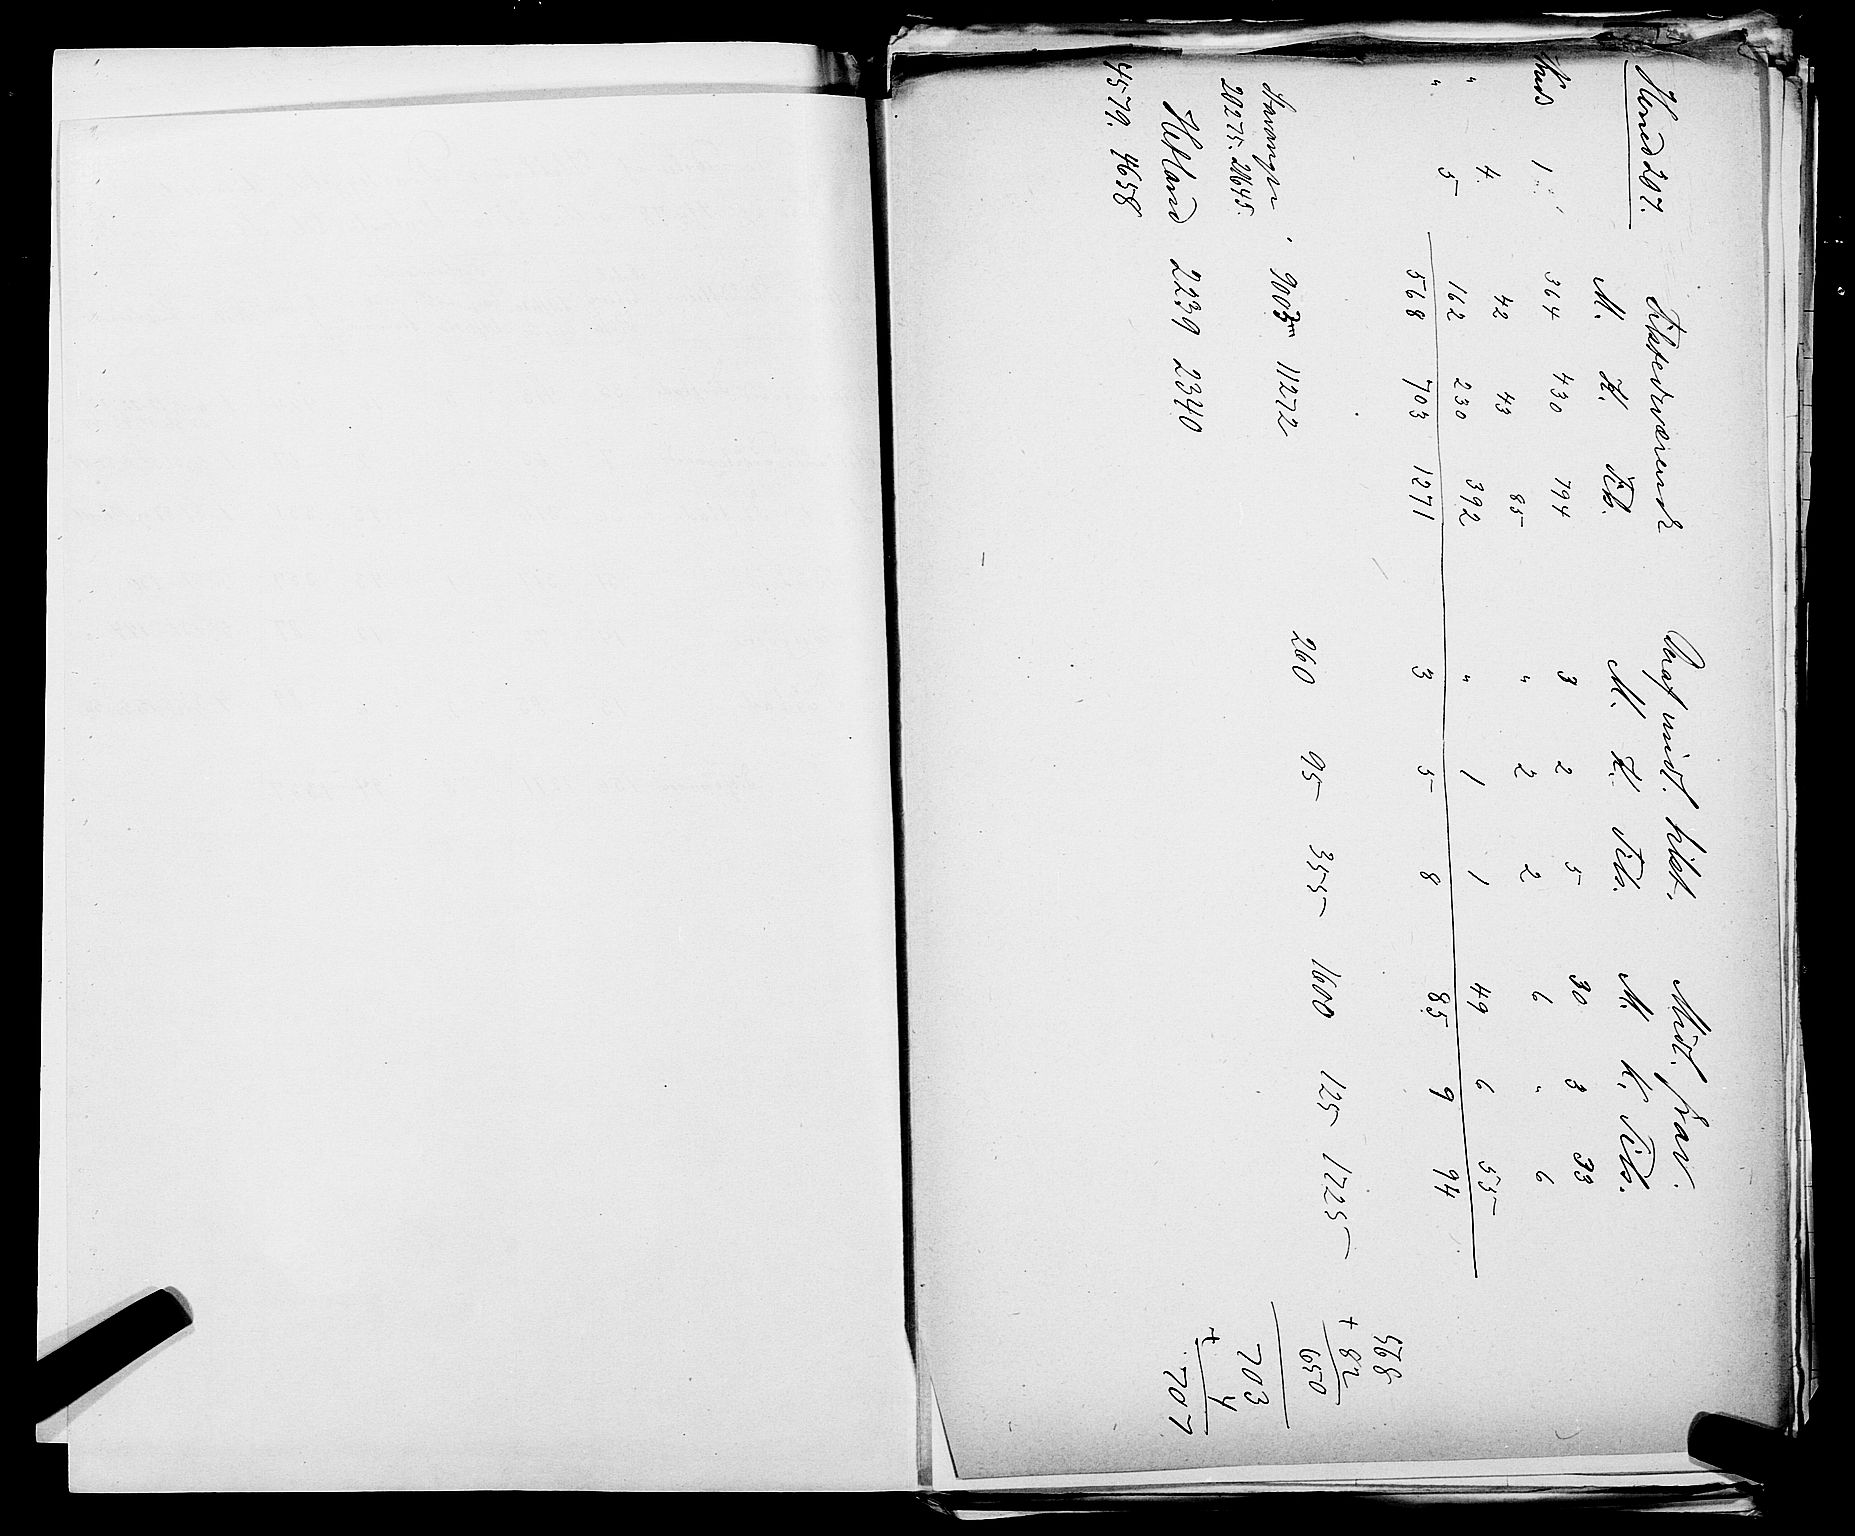 Tilstedværende Deraf midl. tilst. Midl. frav.
M. K. Tils. M. K. Tils. M. K. Tils.
1 364 430 794 3 2 5 30 3 33
" 4 42 43 85 " 2 2 6 " 6
" 5 162 230 392 " 1 1 49 6 55
568 703 1271 3 5 8 85 9 94
568
+ 82
650
Stavanger 9003 11272 260 95 355 1600 125 1725
20275. 21645.
703
+ 4
707
Hetland 2239 2340
4579. 4658